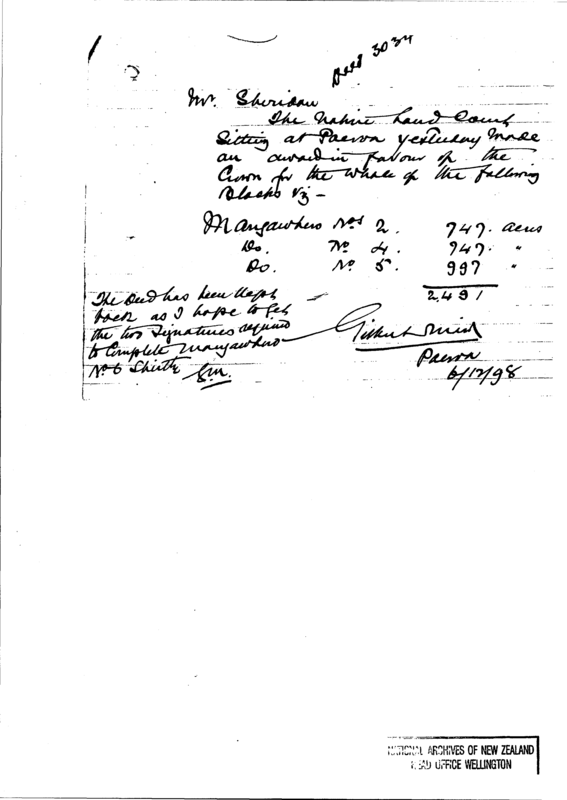 Deed 3034
Mr. Sheridan
The Native Land Court
Sitting at Paeroa yesterday made
an award in favour of the
Crown for the whole of the following
Blocks viz -
Mangawhero Nos 2. 747. acres
Do. No 4. 747. "
Do. No 5. 997 "
2,491
The Deed has been kept
back as I hope to get
the two signatures required
to complete Mangawhero
No 6 shortly G.M.
Gilbert Mair
Paeroa
6/12/98
NATIONAL ARCHIVES OF NEW ZEALAND
HEAD OFFICE WELLINGTON